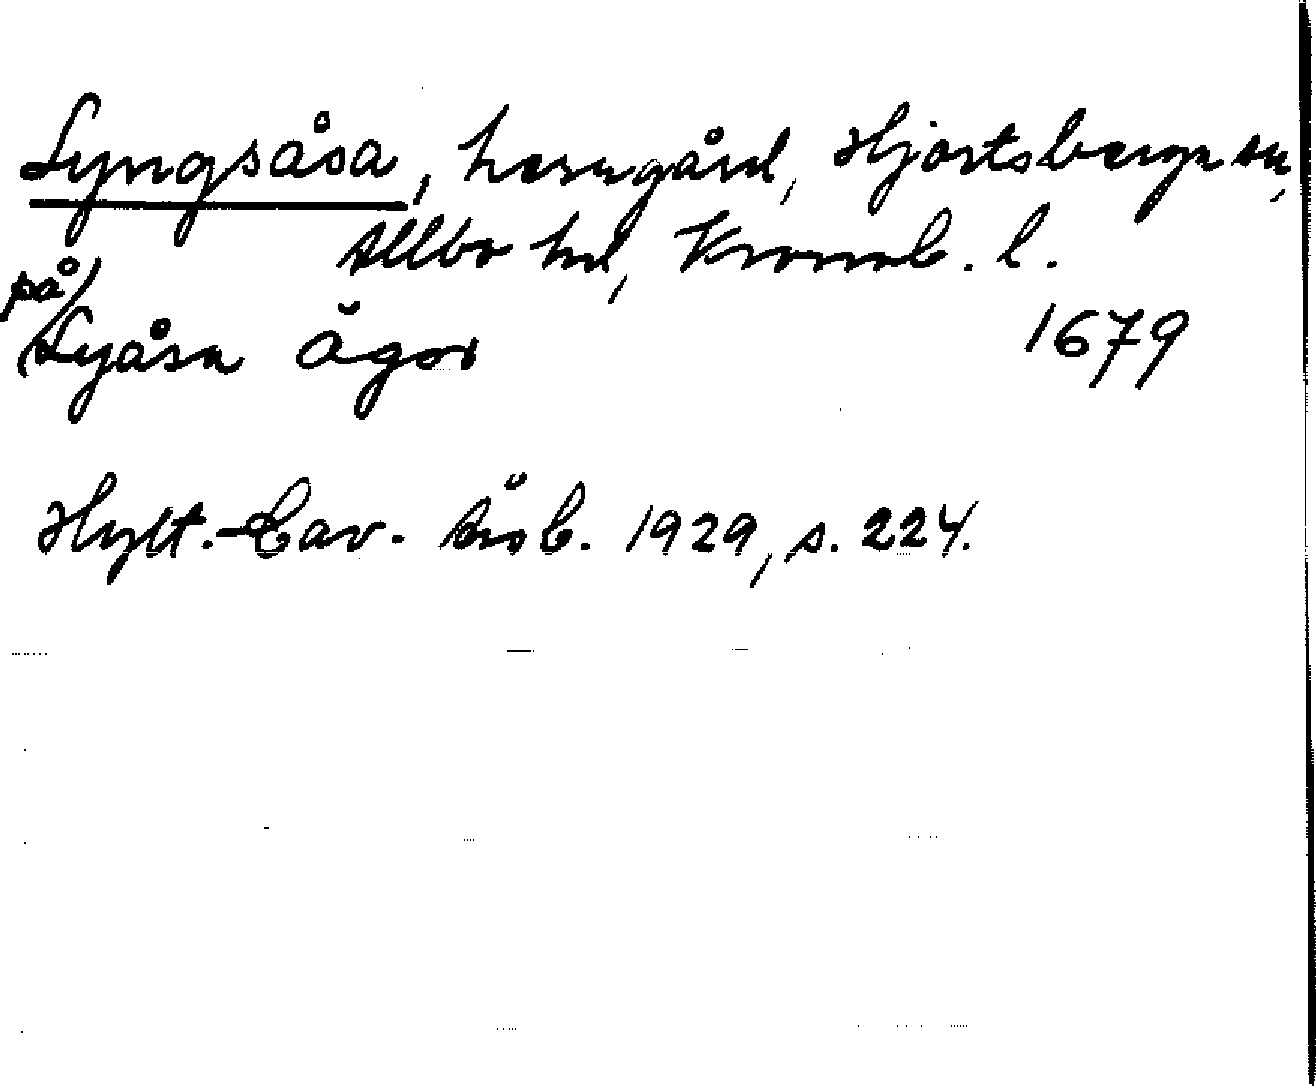 Lyngsåsa, herrgård, Hjortsberga sn,
Allbo hd, Kronob. l.
(på)
Lyåsa Ägor 1679
Hylt.-Cav. årsb. 1929, s. 224.